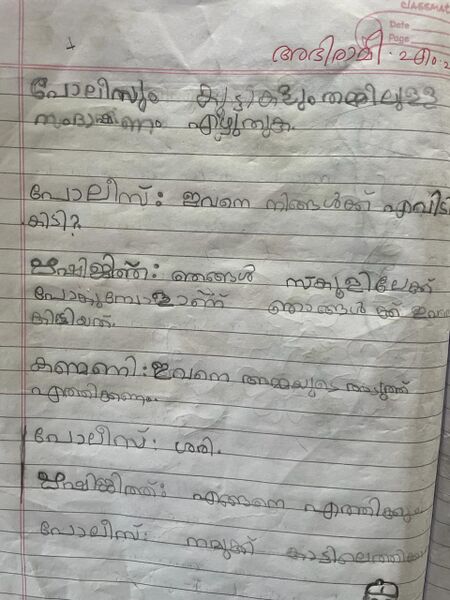 CLASSMATE
Date
Page
അഭിരാമി. എം.
പോലീസും കുട്ടികളും തമ്മിലുള്ള
സംഭാഷണം എഴുതുക.
പോലീസ്: ഇവനെ നിങ്ങൾക്ക് എവിടെ
കിട്ടി?
ഞങ്ങൾ സ്കൂളിലേക്ക്
പോകുമ്പോളാണ് ഞങ്ങൾക്ക് ഇവനെ
കിട്ടിയത്.
കണ്മണി: ഇവനെ അമ്മയുടെ അടുത്ത്
എത്തിക്കണം.
പോലീസ്: ശരി.
എങ്ങനെ എത്തിക്കും
പോലീസ്: നമുക്ക്